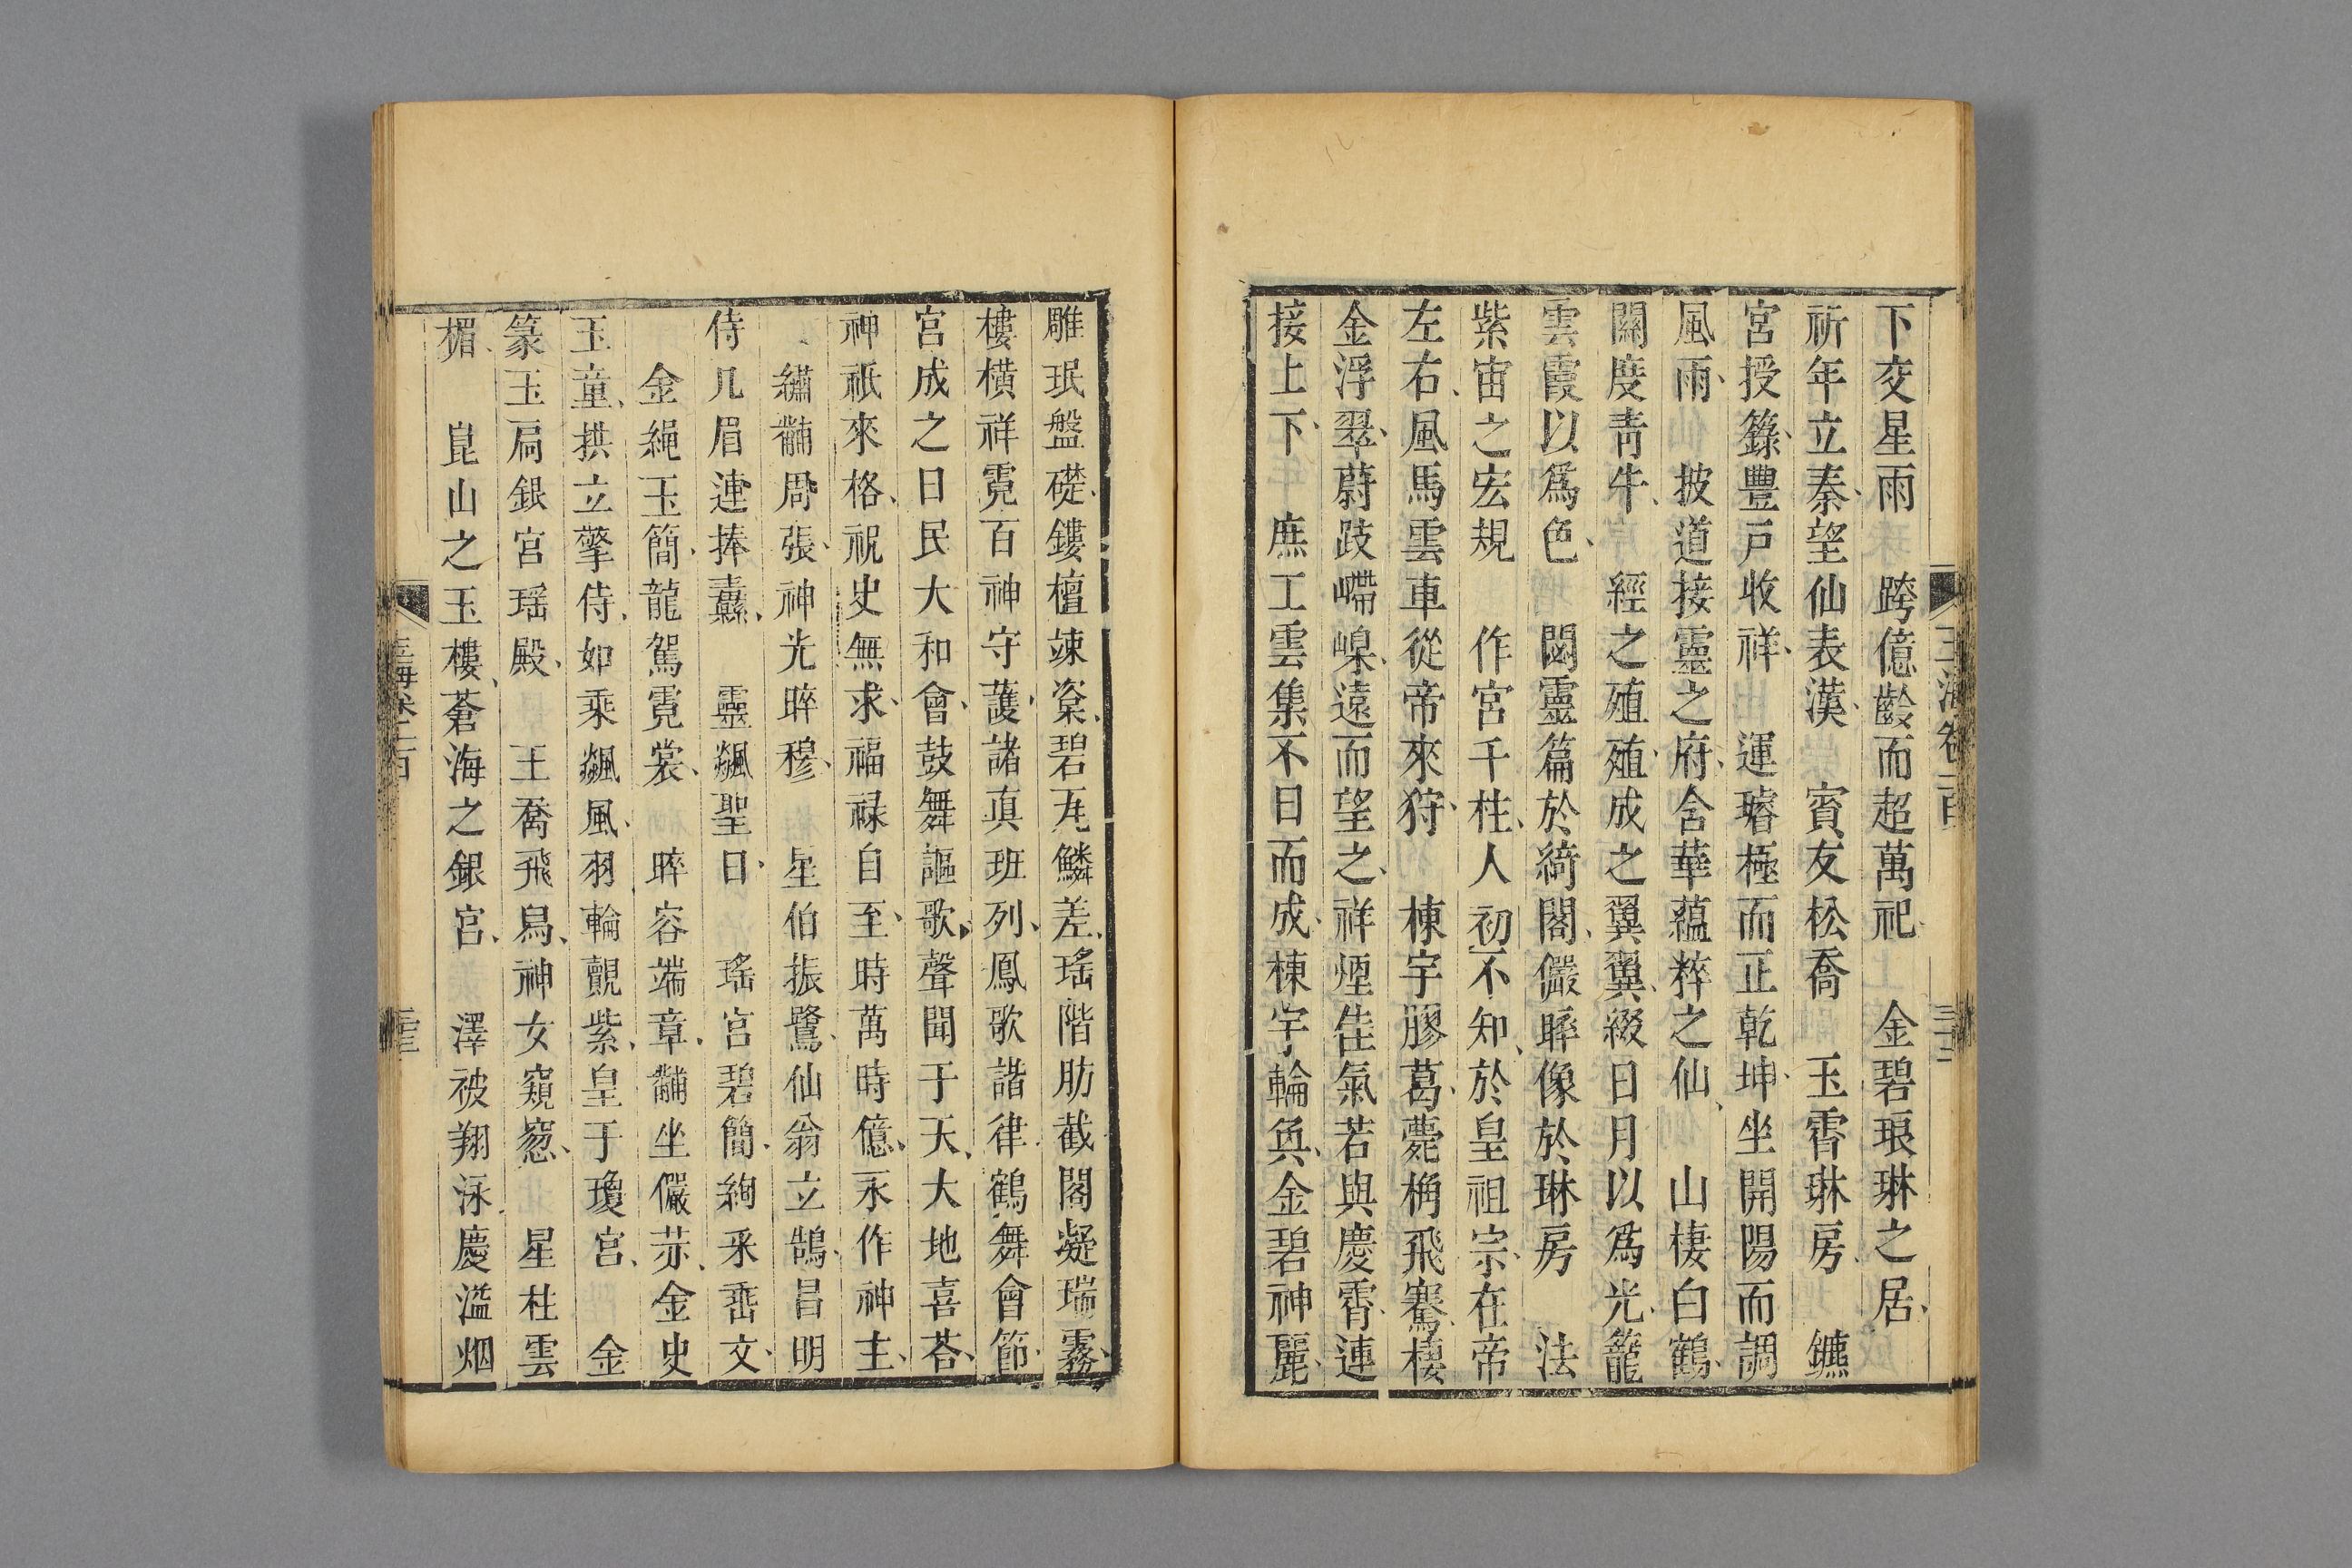 玉海卷二百
三十二
下交星雨　跨億齡而超萬祀　金碧琅琳之居
祈年立秦望仙表漢　賓友松喬　玉霄琳房　鑣
宮授籙豐戸收祥　運璿極而正乾坤坐開陽而調
風雨　披道接靈之府含華蘊粹之仙　山棲白鶴
關度青牛　經之殖殖成之翼翼綴日月以爲光籠
雲霞以爲色　閟靈篇於綺閣儼睟像於琳房　法
紫宙之宏規　作宮千柱人初不知於皇祖宗在帝
左右風馬雲車從帝來狩　棟宇膠葛甍桷飛騫棲
金浮翠蔚跂㟄嵲遠而望之祥煙隹氣若與慶霄連
接上下　庶工雲集不日而成棟宇輪奐金碧神麗
雕珉盤礎鏤檀竦楶碧瓦鱗差瑤階肪截閣凝瑞霧
樓橫祥霓百神守護諸真班列鳳歌諧律鶴舞會節
宮成之日民大和會鼓舞謳歌聲聞于天大地喜荅
神祇來格祝史無求福祿自至時萬時億永作神主
繡黼周張神光睟穆　星伯振鷺仙翁立鵠昌明
侍几眉連捧纛　靈飊聖日　瑤宮碧簡絢采畱文
金繩玉簡龍駕霓裳　睟容端章黼坐儼芾金史
玉童拱立擎侍如乘飊風羽輪覿紫皇于瓊宮　金
篆玉扃銀宮瑤殿　王喬飛舄神女窺窻　星杜雲
楣　崑山之玉樓蒼海之銀宮　澤被翔泳慶溢烟
玉海卷二百
三十三